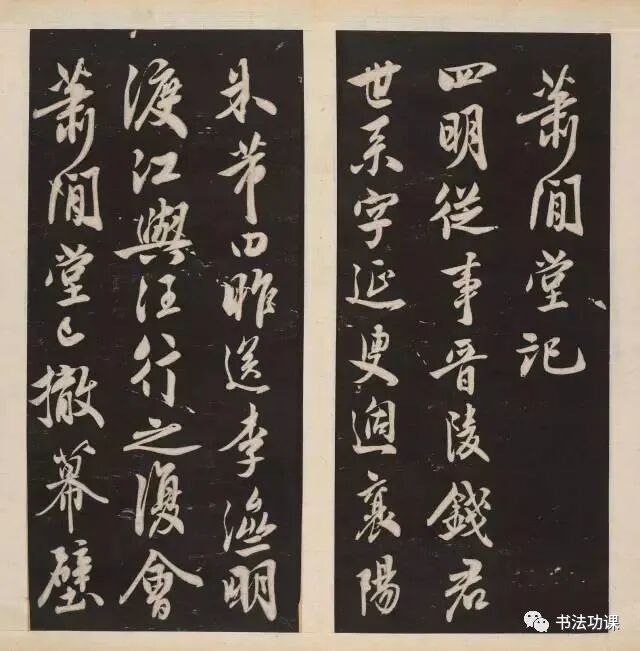 蕭閒堂記
四明從事晉陵錢君
世系字延叟過襄陽
米芾曰昨送李濟明
渡江與汪行之復會
蕭閒堂已撤幕壁
书法功课